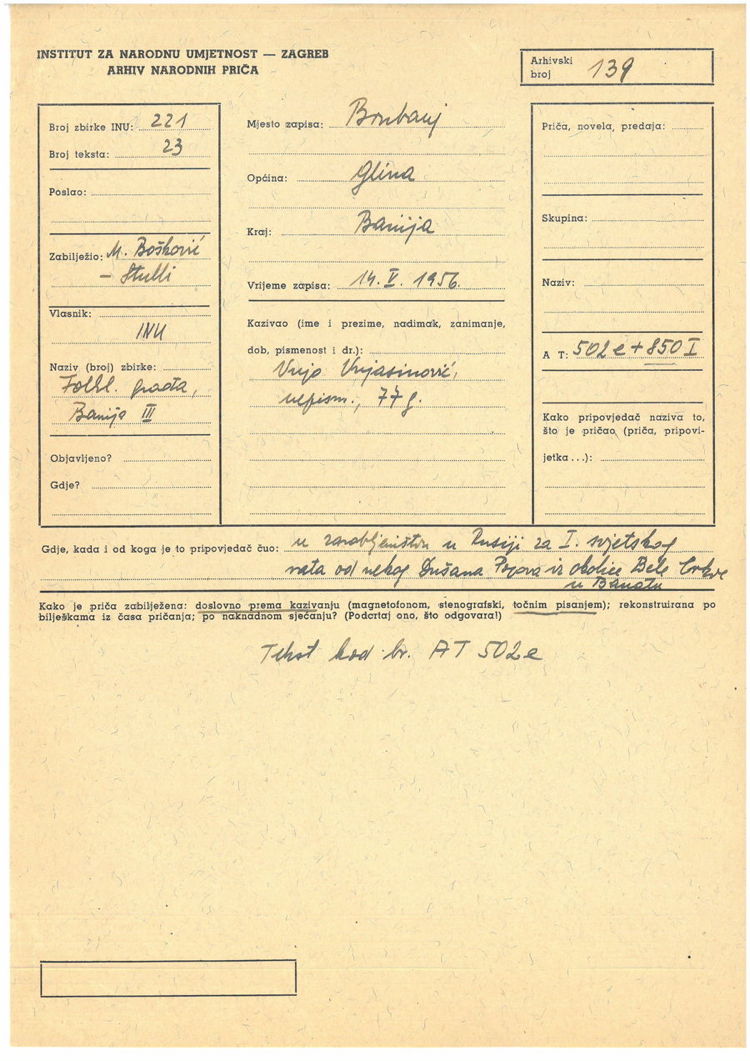 INSTITUT ZA NARODNU UMJETNOST — ZAGREB
ARHIV NARODNIH PRIČA
Arhivski
broj 139
Broj zbirke INU: 221
Broj teksta: 23
Poslao:
Zabilježio: M. Bošković
– Stulli
Vlasnik:
INU
Naziv (broj) zbirke:
Folkl. građa,
Banija III
Objavljeno?
Gdje?
Mjesto zapisa: Brubanj
Općina: Glina
Kraj: Banija
Vrijeme zapisa: 14. V. 1956.
Kazivao (ime i prezime, nadimak, zanimanje,
dob, pismenost i dr.):
Vujo Vujasinović,
nepism., 77 g.
Priča, novela, predaja:
Skupina:
Naziv:
A T: 502e + 850 I
Kako pripovjedač naziva to,
što je pričao (priča, pripovi-
jetka...):
Gdje, kada i od koga je to pripovjedač čuo: u zarobljeništvu u Rusiji za I. svjetskog
rata od nekog Dušana Popova iz okolice Bele Crkve
u Banatu
Kako je priča zabilježena: doslovno prema kazivanju (magnetofonom, stenografski, točnim pisanjem); rekonstruirana po
bilješkama iz časa pričanja; po naknadnom sjećanju? (Podcrtaj ono, što odgovara!)
Tekst kod br. AT 502e